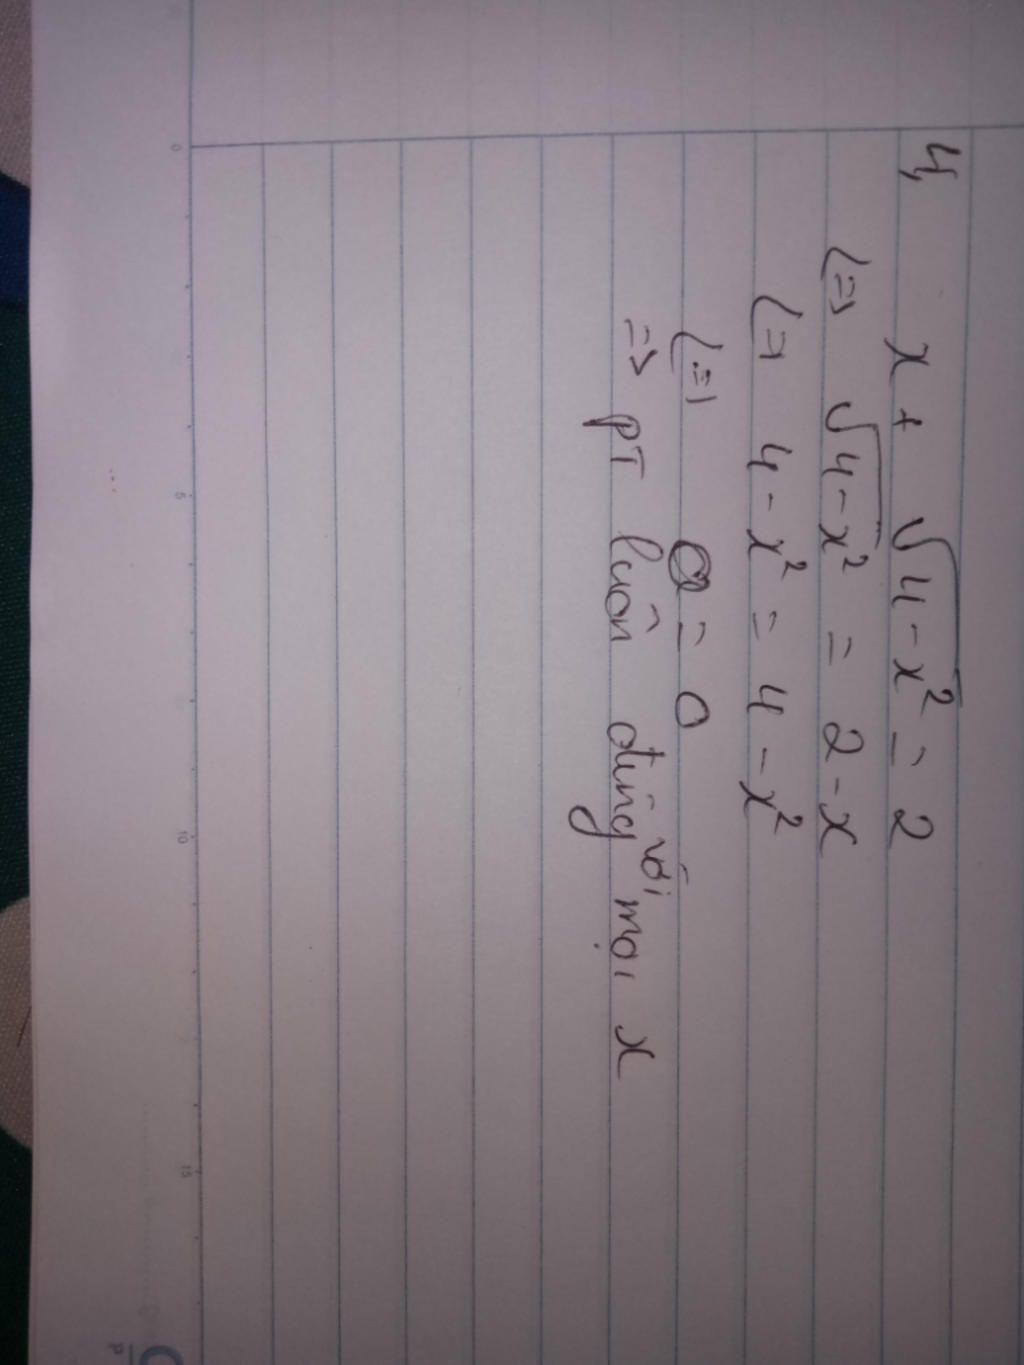 4, x + √4-x² = 2
(=) √4-x² = 2-x
(=) 4-x² = 4-x²
(=) 0 = 0
=> PT luôn đúng với mọi x
0
5
10
15